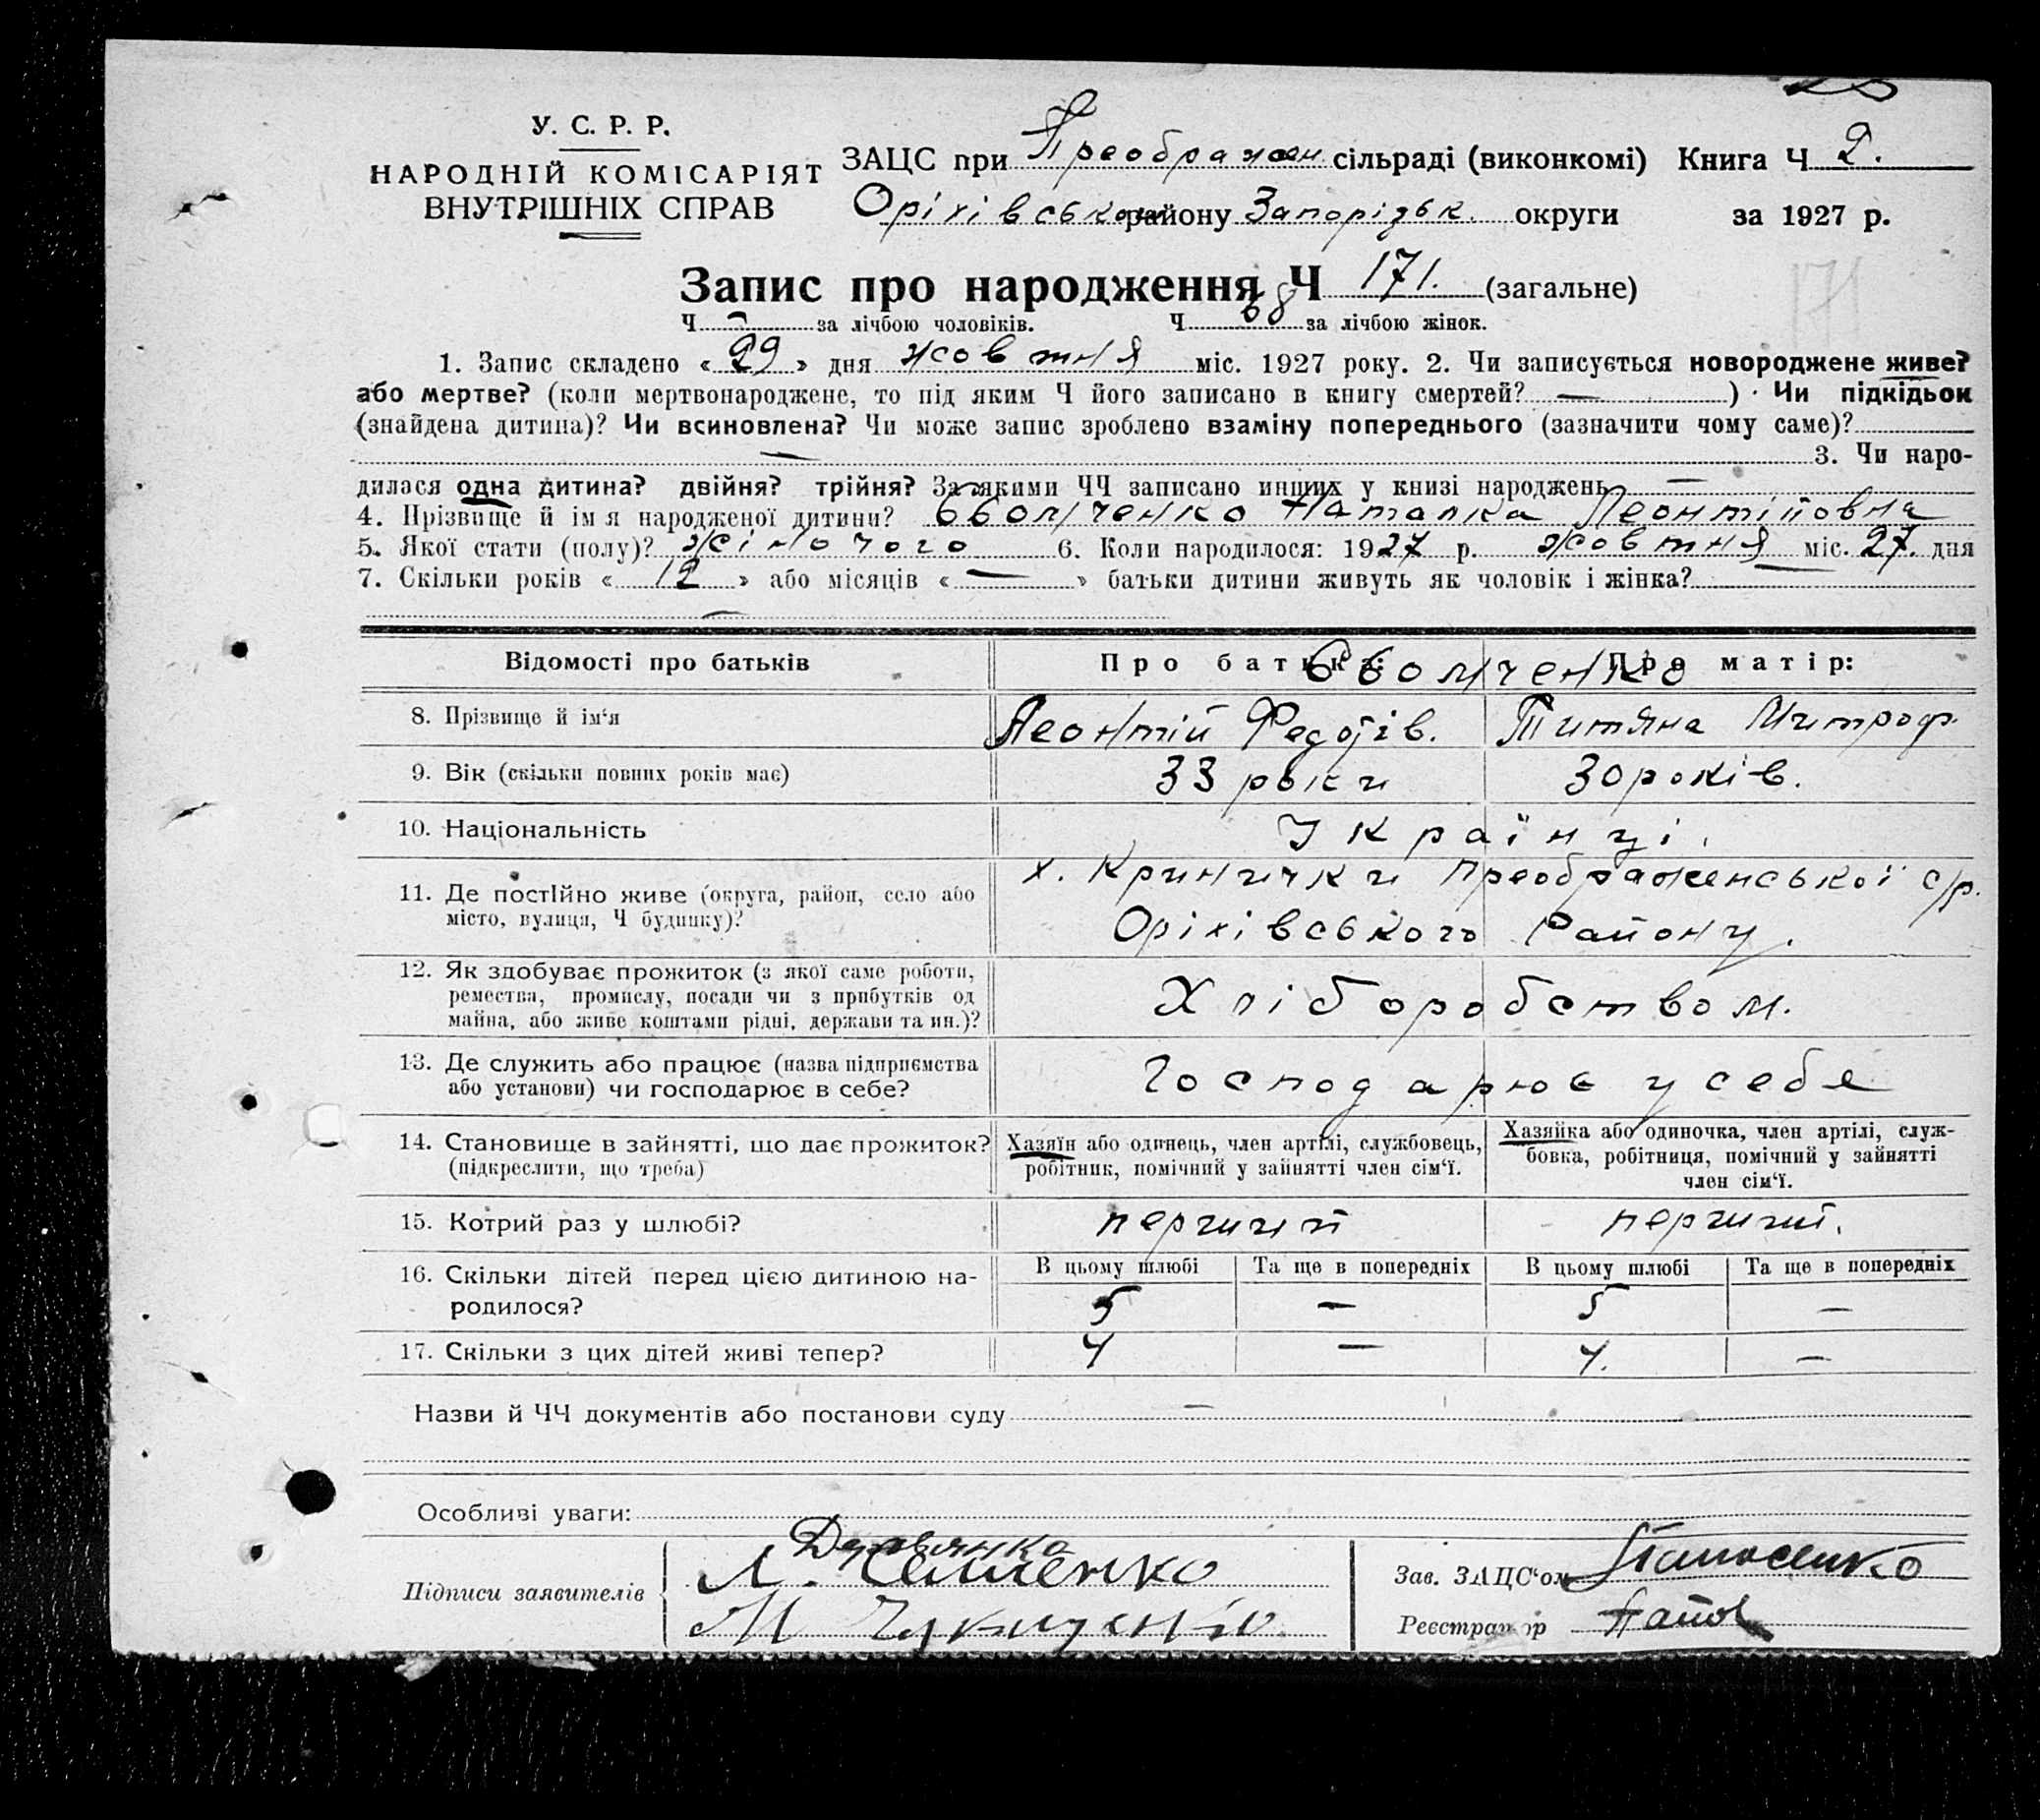 У. С. Р. Р.
НАРОДНІЙ КОМІСАРІЯТ
ВНУТРІШНІХ СПРАВ
ЗАЦС при Преображен. сільраді (виконкомі) Книга Ч 2.
Оріхівськом району Запорізьк. округи за 1927 р.
Запис про народження Ч 171. (загальне)
171
Ч - за лічбою чоловіків. Ч 68 за лічбою жінок.
1. Запис складено « 29 » дня жовтня міс. 1927 року. 2. Чи записується новороджене живе?
або мертве? (коли мертвонароджене, то під яким Ч його записано в книгу смертей? — ) · Чи підкідьок
(знайдена дитина)? Чи всиновлена? Чи може запис зроблено взаміну попереднього (зазначити чому саме)?
— 3. Чи наро-
дилася одна дитина? двійня? трійня? За якими ЧЧ записано инших у книзі народжень —
4. Прізвище й ім я народженої дитини? Наталка Леонтійовна
5. Якої стати (полу)? жіночого 6. Коли народилося: 1927 р. жовтня міс. 27. дня
7. Скільки років « 12 » або місяців « — » батьки дитини живуть як чоловік і жінка? —
—
Відомості про батьків Про батька: Про матір:
8. Прізвище й ім‘я Леонтій Федотів. Титяна Митроф.
9. Вік (скільки повних років має) 33 роки 30 років.
10. Національність Українці.
11. Де постІйно живе (округа, район, село або місто, вулиця, Ч будинку)? х. Кринички Преображенської с/р.
Оріхівського Району.
12. Як здобуває прожиток (з якої саме роботи,
ремества, промислу, посади чи з прибутків од
майна, або живе коштами рідні, держави та ин.)? Хліборобством.
13. Де служить або працює (назва підприємства
або установи) чи господарює в себе? Господарює у себе
14. Становище в зайнятті, що дає прожиток?
(підкреслити, що треба)
Хазяїн або одинець, член артілі, службовець,
робітник, помічний у зайнятті член сім‘ї.
Хазяйка або одиночка, член артілі, служ-
бовка, робітниця, помічний у зайнятті
член сім‘ї.
15. Котрий раз у шлюбі? перший перший.
16. Скільки дітей перед цією дитиною на-
родилося?
В цьому шлюбі Та ще в попередніх В цьому шлюбі Та ще в попередніх
5 — 5 —
17. Скільки з цих дітей живі тепер? 4 — 4. —
Назви й ЧЧ документів або постанови суду —
Особливі уваги:
Підписи заявителів
Зав. ЗАЦС‘ом
Реєстратор